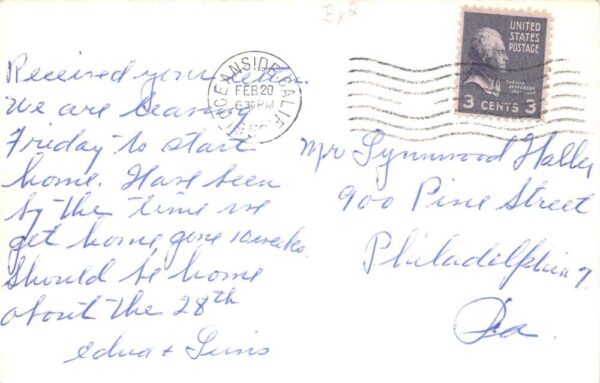 Bx2
UNITED
STATES
POSTAGE
THOMAS
JEFFERSON
3 CENTS 3
OCEANSIDE, CALIF.
FEB 20
630 PM
Received your letter.
We are leaving
Friday to start
home. Have been
by the time we
get home, gone 10 weeks.
Should be home
about the 28th
Edna +
Mr Lynnwood Haller
900 Pine Street
Philadelphia 7.
Pa